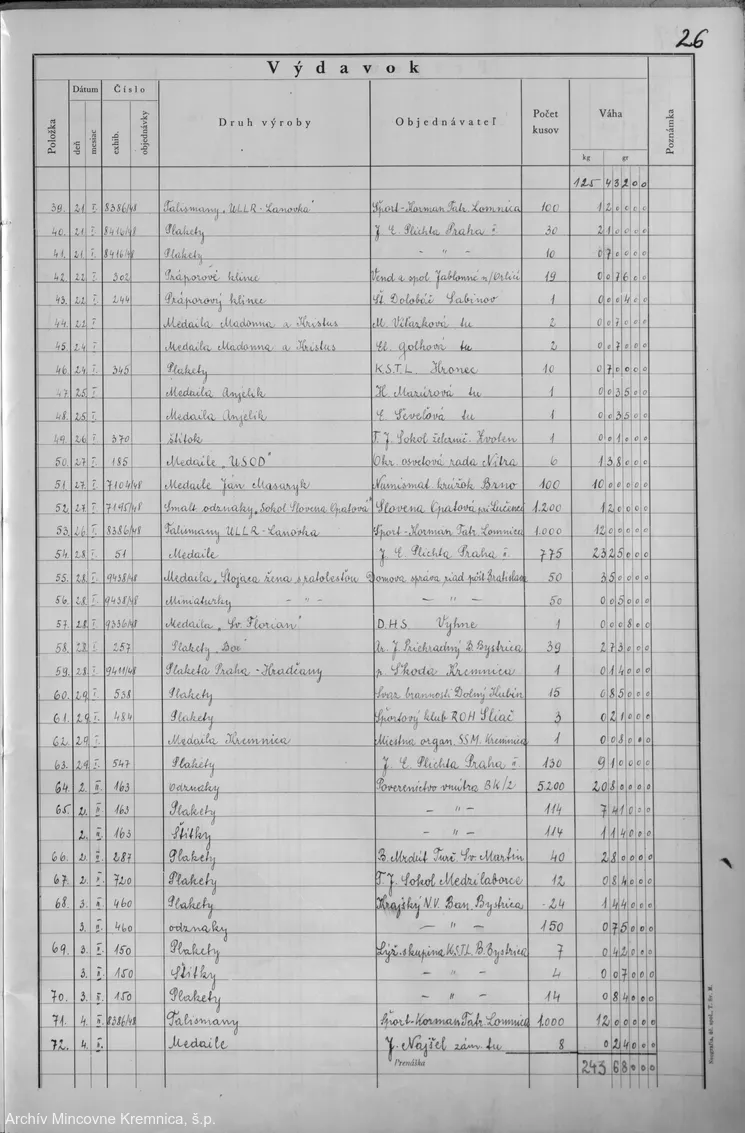 26
Výdavok
Položka Dátum Číslo Druh výroby Objednávateľ Počet kusov Váha Poznámka
deň mesiac exhib. objednávky kg gr
125 43200
39. 21. I. 8386/48 Talismany "ULLR-Lanovka" Šport-Korman Tatr. Lomnica 100 1 2000
40. 21. I. 8416/48 Plakety J. E. Plichta Praha II. 30 2 10000
41. 21. I. 8416/48 Plakety — " — 10 0 70000
42. 22. I. 302 Práporové klince Vend a spol. Jablonné n/Orlicí 19 0 0760
43. 22. I. 244 Práporový klinec Št. Dolobáč Sabinov 1 0 0040
44. 22. I. Medaila Madonna a Kristus M. Víťazková tu 2 0 0700
45. 24. I. Medaila Madonna a Kristus El. Golhová tu 2 0 0700
46. 24. I. 345 Plakety K.S.T.L. Hronec 10 0 7000
47. 25. I. Medaila Anjelik H. Mazúrová tu 1 0 0350
48. 25. I. Medaila Anjelik E. Ševeľová tu 1 0 0350
49. 26. I. 370 štítok T. J. Sokol železnič. Zvolen 1 0 0100
50. 27. I. 185 Medaile "USOD" Okr. osvetová rada Nitra 6 1 3800
51. 27. I. 7104/48 Medaile Ján Masaryk Numismat. krúžok Brno 100 10 0000
52. 27. I. 7195/48 Smalt. odznaky "Sokol Slovena Opatová" Slovena Opatová pri Lučenci 1.200 1 2000
53. 26. I. 8386/48 Talismany ULLR-Lanovka Šport-Korman Tatr. Lomnica 1.000 12 0000
54. 28. I. 51 Medaile J. E. Plichta Praha II. 775 23 25000
55. 28. I. 9438/48 Medaila "Stojaca žena s ratolesťou" Domova správa riad. pôšt Bratislava 50 3 5000
56. 28. I. 9438/48 Miniaturky — " — — " — 50 0 0500
57. 28. I. 9336/48 Medaila "Sv. Florian" D.H.S. Vyhne 1 0 0080
58. 28. I. 257 Plakety "Boc" Dr. J. Prichradný B. Bystrica 39 2 7300
59. 28. I. 9411/48 Plaketa Praha-Hradčany p. Škoda Kremnica 1 0 1400
60. 29. I. 538 Plakety Sväz brannosti Dolný Kubín 15 0 8500
61. 29. I. 484 Plakety Športový klub ROH Sliač 3 0 2100
62. 29. I. Medaila Kremnica Miestna organ. SSM. Kremnica 1 0 0800
63. 29. I. 547 Plakety J. E. Plichta Praha II. 130 9 1000
64. 2. II. 163 odznaky Povereníctvo vnútra BK/2 5.200 20 8000
65. 2. II. 163 Plakety — " — 114 7 4100
2. II. 163 Štítky — " — 114 1 1400
66. 2. II. 287 Plakety B. Mrdút Turč. Sv. Martin 40 2 8000
67. 2. II. 720 Plakety T. J. Sokol Medzilaborce 12 0 8400
68. 3. II. 460 Plakety Krajský N.V. Ban. Bystrica 24 1 4400
3. II. 460 odznaky — " — 150 0 7500
69. 3. II. 150 Plakety Lyž. skupina K.S.T.L. B. Bystrica 7 0 4200
3. II. 150 Štítky — " — 4 0 0700
70. 3. II. 150 Plakety — " — 14 0 8400
71. 4. II. 8386/48 Talismany Šport-Korman Tatr. Lomnica 1.000 12 0000
72. 4. II. Medaile J. Najšel zám. tu 8 0 2400
Prenáška 243 68000
Neografia, úč. spol., T. Sv. M.
Archív Mincovne Kremnica, š.p.